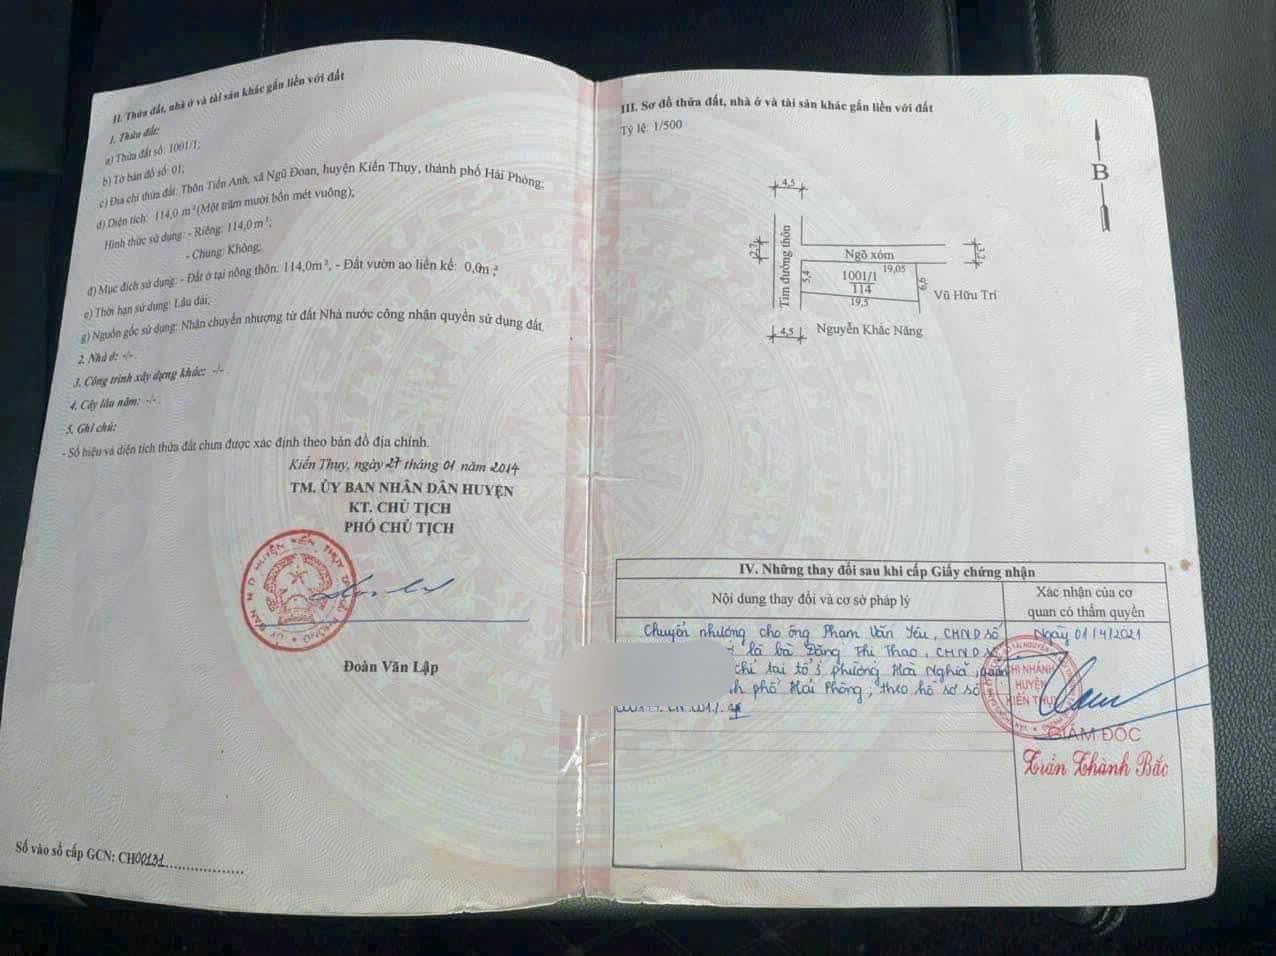 II. Thửa đất, nhà ở và tài sản khác gắn liền với đất
1. Thửa đất:
a) Thửa đất số: 1001/1;
b) Tờ bản đồ số: 01;
c) Địa chỉ thửa đất: Thôn Tiến Anh, xã Ngũ Đoan, huyện Kiến Thụy, thành phố Hải Phòng;
d) Diện tích: 114,0 m² (Một trăm mười bốn mét vuông);
Hình thức sử dụng: - Riêng: 114,0 m²;
- Chung: Không;
đ) Mục đích sử dụng: - Đất ở tại nông thôn: 114,0m², - Đất vườn ao liền kề: 0,0m²;
e) Thời hạn sử dụng: Lâu dài;
g) Nguồn gốc sử dụng: Nhận chuyển nhượng từ đất Nhà nước công nhận quyền sử dụng đất.
2. Nhà ở: -/-
3. Công trình xây dựng khác: -/-
4. Cây lâu năm: -/-
5. Ghi chú:
- Số hiệu và diện tích thửa đất chưa được xác định theo bản đồ địa chính.
Kiến Thụy, ngày 27 tháng 01 năm 2014
TM. ỦY BAN NHÂN DÂN HUYỆN
KT. CHỦ TỊCH
PHÓ CHỦ TỊCH
Đoàn Văn Lập
Số vào sổ cấp GCN: CH00131
III. Sơ đồ thửa đất, nhà ở và tài sản khác gắn liền với đất
Tỷ lệ: 1/500
B
4,5
2,7
Tim đường thôn
Ngõ xóm
3,2
19,05
5,4
1001/1
114
6,6
19,5
Vũ Hữu Trí
4,5
Nguyễn Khắc Năng
IV. Những thay đổi sau khi cấp Giấy chứng nhận
Nội dung thay đổi và cơ sở pháp lý
Xác nhận của cơ quan có thẩm quyền
Chuyển nhượng cho ông Phạm Văn Yêu, CMND số
là bà Đặng Thị Thao, CMND số
chỉ tại tổ 3 phường Hải Nghĩa, quận
phố Hải Phòng; theo hồ sơ số
Ngày 01/4/2021
CHI NHÁNH
HUYỆN
KIẾN THỤY
GIÁM ĐỐC
Trần Thành Bắc